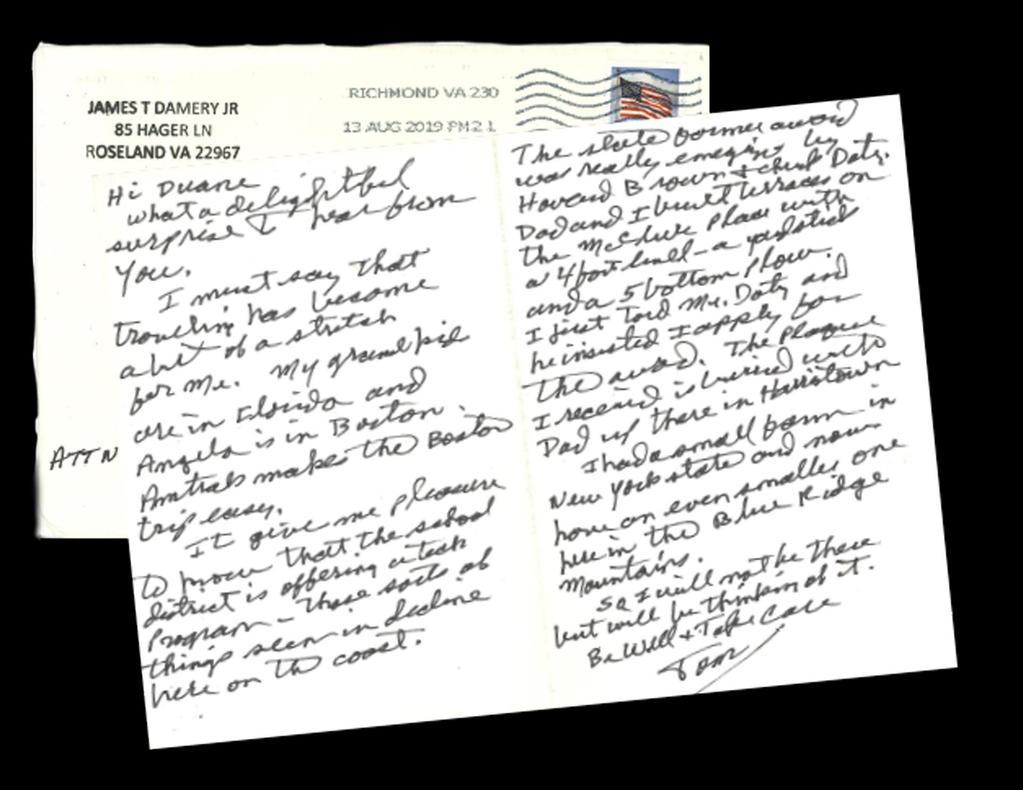 JAMES T DAMERY JR
85 HAGER LN
ROSELAND VA 22967
RICHMOND VA 230
13 AUG 2019 PM 2 L
ATTN
Hi Duane
what a delightful
surprise to hear from
you.
I must say that
traveling has become
a bit of a stretch
for me. My grand kids
are in Florida and
Angela is in Boston.
Amtrak makes the Boston
trip easy.
It give me pleasure
to know that the school
district is offering a tech
program - those sorts of
things seem in decline
here on the coast.
The state farmer award
was really emerging by
Howard Brown + Doty.
Dad and I built terraces on
the McClure Place with
a 4 foot level - a yardstick
and a 5 bottom plow.
I just told Mr. Doty and
he insisted I apply for
the award. The plaque
I received is buried with
Dad up there in Harristown
I had a small farm in
New York state and now
have an even smaller one
here in the Blue Ridge
Mountains.
So I will not be there
but will be thinking of it.
Be Well + Take Care
Tom